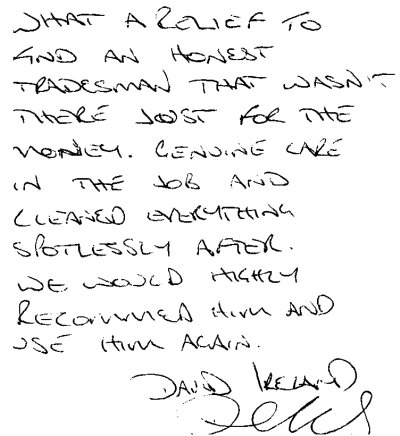 WHAT A RELIEF TO
FIND AN HONEST
TRADESMAN THAT WASN'T
THERE JUST FOR THE
MONEY. GENUINE CARE
IN THE JOB AND
CLEANED EVERYTHING
SPOTLESSLY AFTER.
WE WOULD HIGHLY
RECOMMED HIM AND
USE HIM AGAIN.
DAVID IRELAND